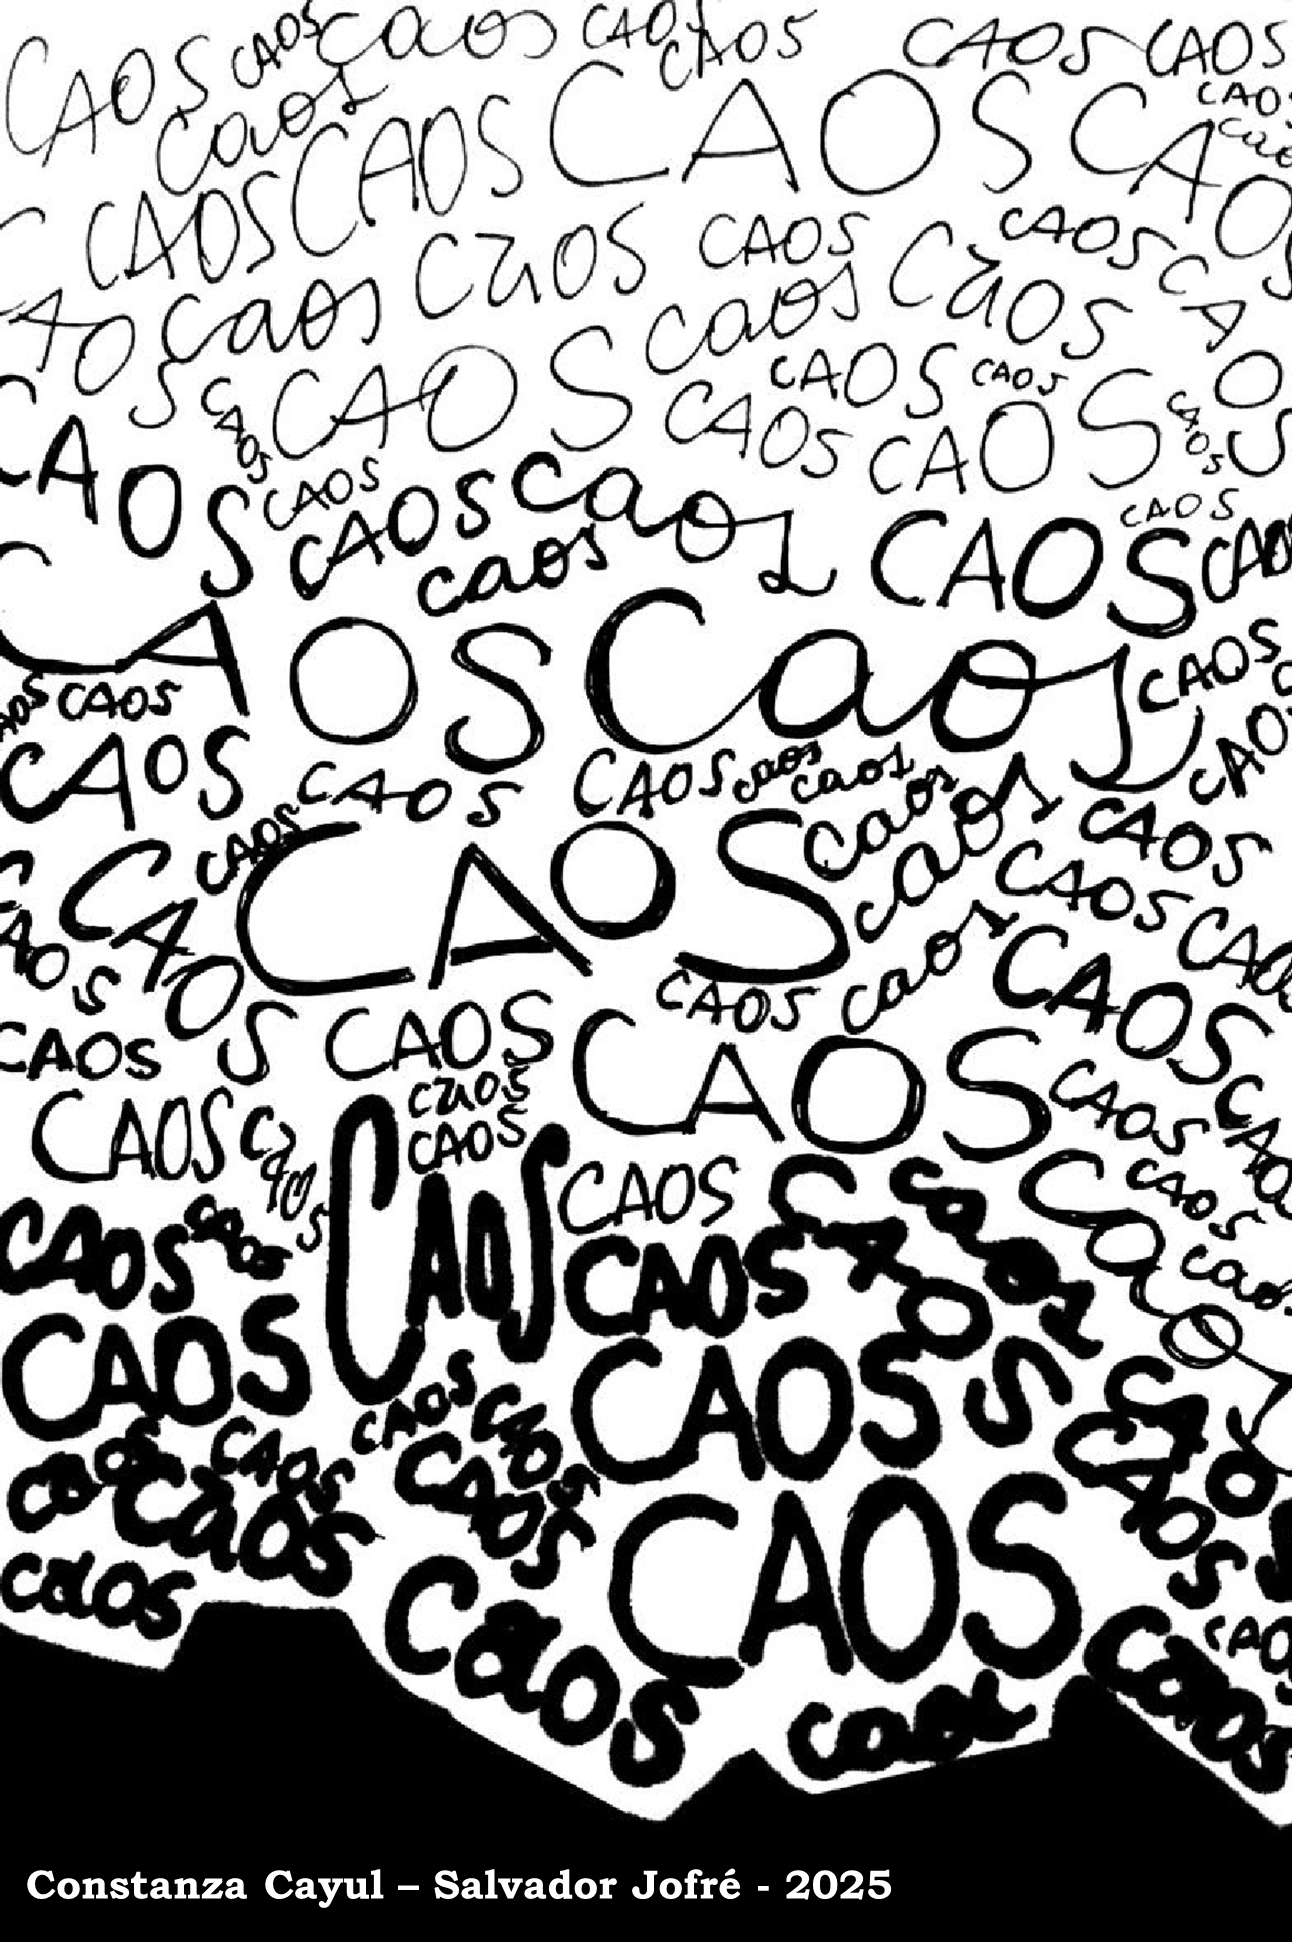 CAOS CAOS caos CAOS CAOS CAOS CAOS
caos CAOS CAOS CAOS CAOS caos
CAOS CAOS caos CAOS CAOS CAOS
CAOS caos caos CAOS
CAOS CAOS CAOS CAOS CAOS CAOS CAOS
CAOS CAOS CAOS caos CAOS CAOS CAOS
caos
CAOS caos CAOS
CAOS CAOS CAOS
CAOS CAOS CAOS caos caos caos caos CAOS
CAOS CAOS CAOS CAOS CAOS
CAOS CAOS caos CAOS
CAOS CAOS CAOS CAOS
CAOS CAOS CAOS CAOS CAOS
CAOS CAOS CAOS caos caos CAOS
CAOS caos CAOS caos
CAOS CAOS CAOS CAOS
caos CAOS CAOS CAOS CAOS
caos CAOS CAOS
caos caos CAOS CAOS
caos caos
Constanza Cayul – Salvador Jofré - 2025